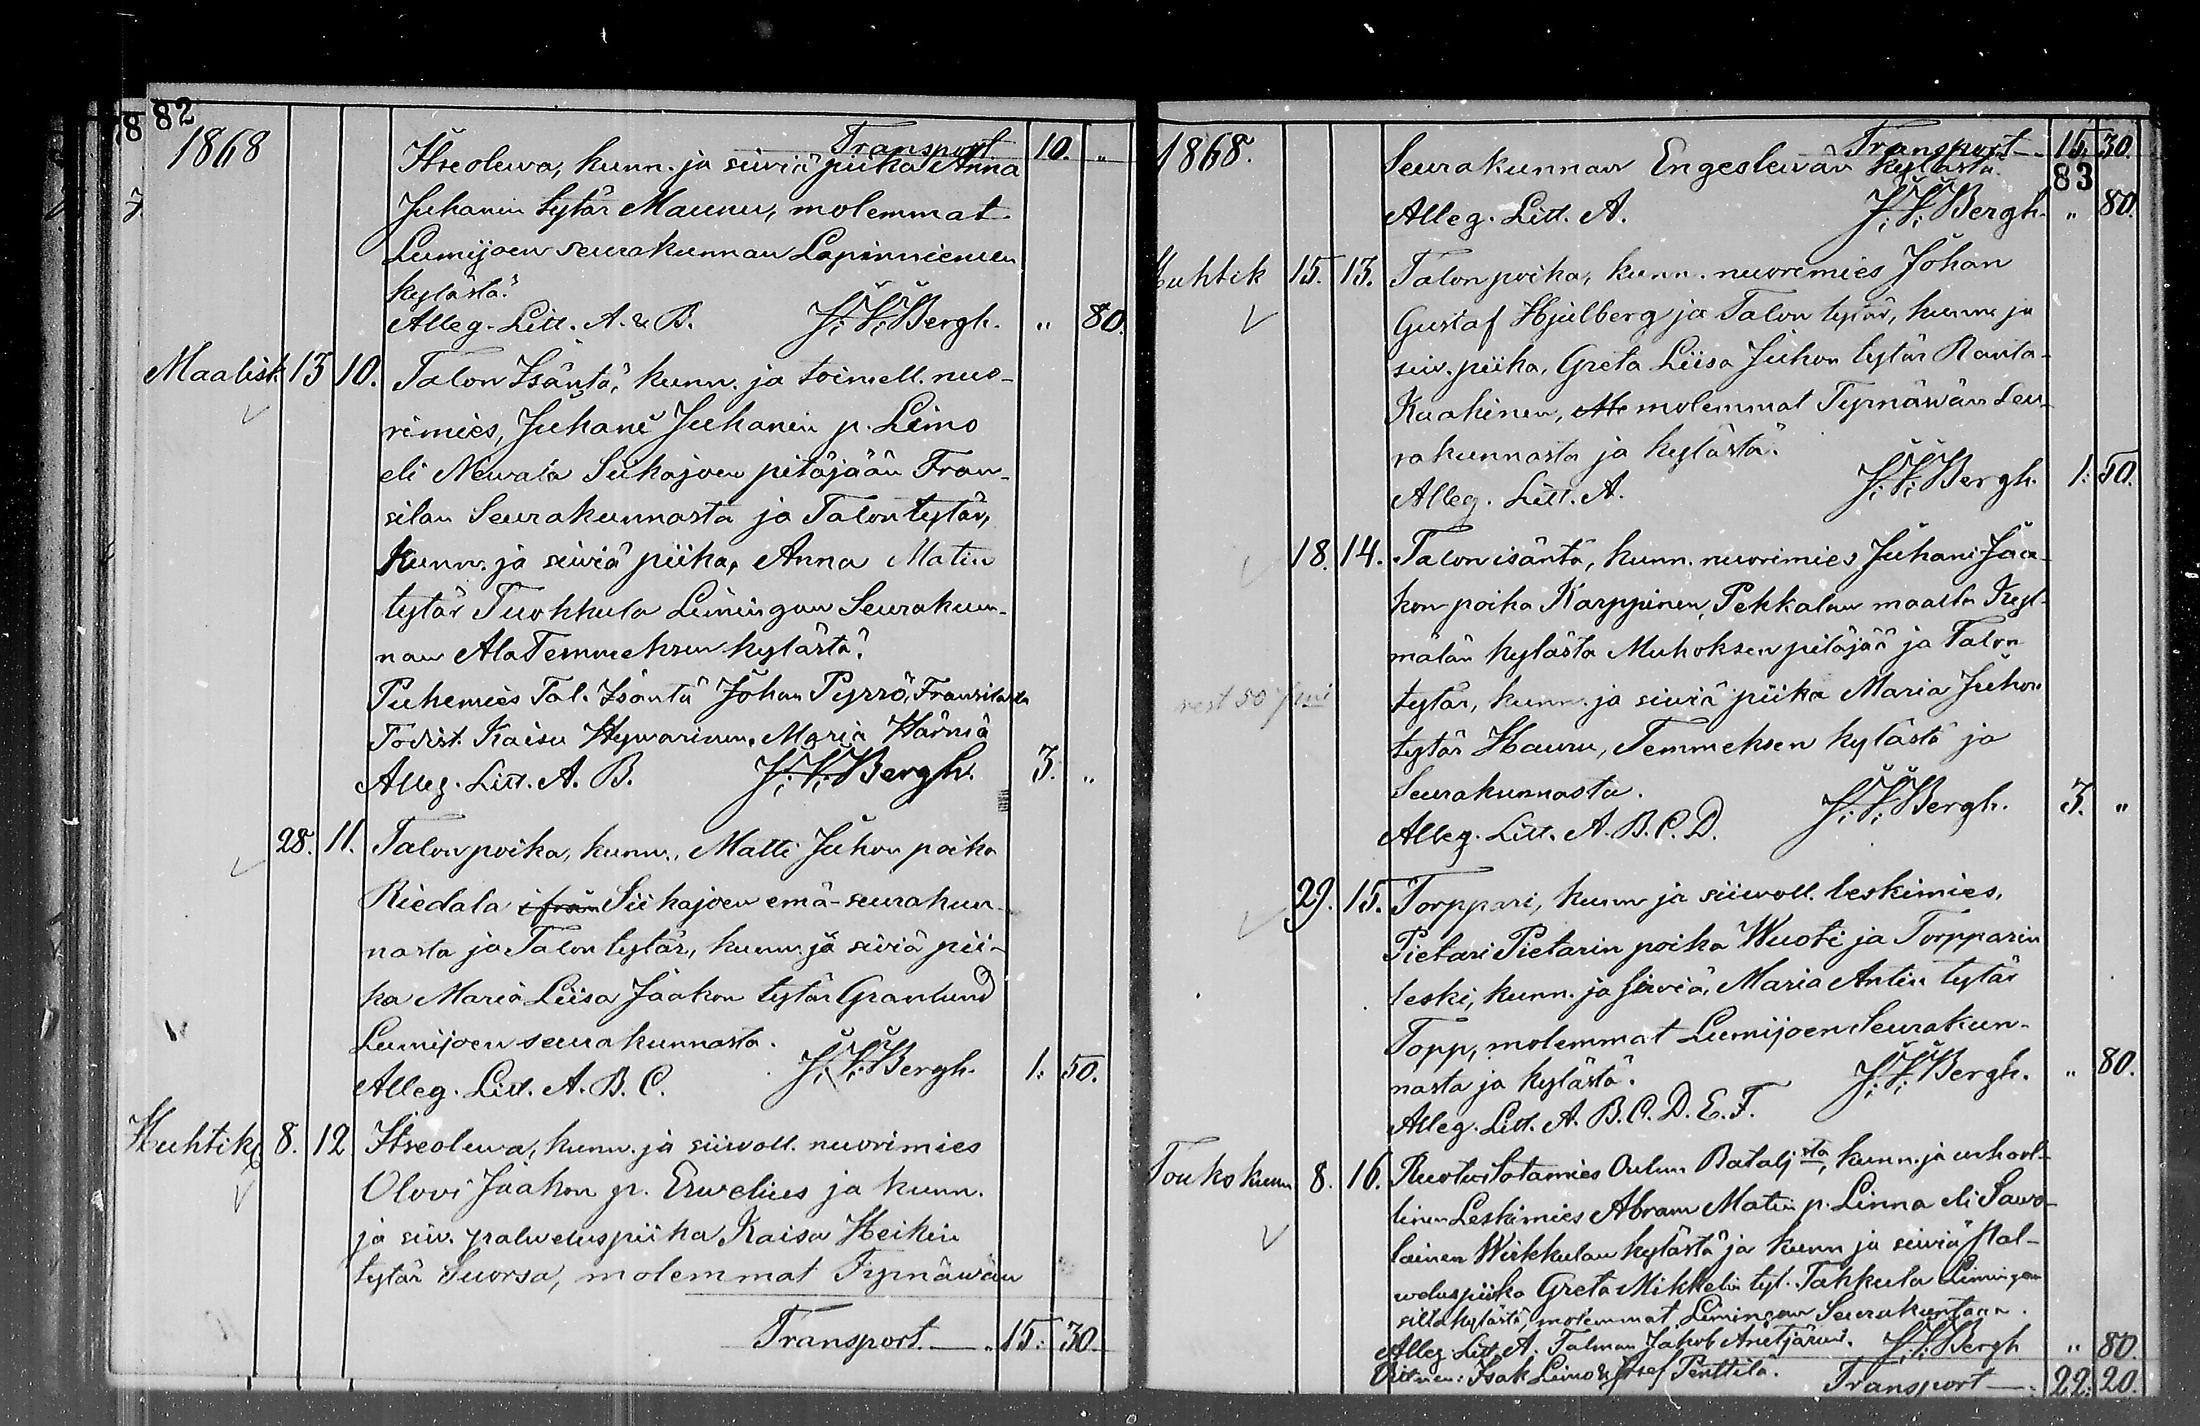 82
1868 Transport 10. "
Itseolewa, kunn. ja siiviä piika Anna
Juhanin tytär Maunu, molemmat
Lumijoen seurakunnan Lapinniemen
kylästä.
Alleg. Litt. A. & B. J. V. Bergh. " 80.
Maalisk. 13 10. Talon Isäntä, kunn. ja toimell. nuo-
rimies, Juhani Juhanin p. Leino
eli Newala Siikajoen pitäjään Fran-
silan Seurakunnasta ja Talon tytär,
kunn. ja siiviä piika, Anna Matin
tytär Tuokkula Limingan Seurakun-
nan Ala Temmeksen kylästä.
Puhemies Tal. Isäntä Johan Pyrrö, Fransilasta
Todist. Kaisa Hywärinen, Maria Härmä
Alleg. Litt. A. B. J. V. Bergh. 3. "
28. 11. Talon poika, kunn., Matti Juhon poika
Riedala ifrån Siikajoen emä-seurakun-
nasta ja Talon tytär, kunn. ja siiviä pii-
ka Maria Liisa Jaakon tytär Granlund
Lumijoen seurakunnasta.
Alleg. Litt. A. B. C. J. V. Bergh. 1: 50.
Huhtik. 8. 12 Itseolewa, kunn. ja siiwoll. nuorimies
Olovi Jaakon p. Erwelius ja kunn.
ja siiv. palweluspiika Kaisa Heikin
tytär Suorsa, molemmat Tyrnäwän
Transport 15: 30.
1868. Transport 15: 30.
83
Seurakunnan Engeslewän kylästä.
Alleg. Litt. A. J. V. Bergh. " 80.
Huhtik 15. 13. Talon poika, kunn. nuorimies Johan
Gustaf Hjulberg ja Talon tytär, kunn. ja
siiv. piika, Greta Liisa Juhon tytär Ranta-
Kaakinen, molemmat Tyrnäwän Seu-
rakunnasta ja kylästä.
Alleg. Litt. A. J. V. Bergh. 1: 50.
18. 14. Talon isäntä, kunn. nuorimies Juhani Jaa-
kon poika Karppinen, Pekkalan maalta Kyl-
mälän kylästä Muhoksen pitäjää ja Talon
rest 50
tytär, kunn. ja siiviä piika Maria Juhon
tytär Hauru, Temmeksen kylästä ja
Seurakunnasta.
Alleg. Litt. A. B. C. D. J. V. Bergh. 3. "
29. 15. Torppari, kunn ja siiwoll. leskimies,
Pietari Pietarin poika Wuoti ja Torpparin
leski, kunn. ja siiviä, Maria Antin tytär
Topp, molemmat Lumijoen Seurakun-
nasta ja kylästä. J. V. Bergh. " 80.
Alleg. Litt. A. B. C. D. E. F.
Toukokuun 8. 16. Ruotusotamies Oulun Batalj sta, kunn. ja urhool-
linen Leskimies Abram Matin p. Linna eli Sawo-
lainen Wirkkulan kylästä ja kunn ja siiviä Pal-
weluspiika Greta Mikkelin tyt. Takkula Limingan
kylästä, molemmat Limingan Seurakuntaan.
Alleg. Litt. A. Talman Jakob Anetjärwi. J. V. Bergh " 80.
Witnen: Isak Leino & Josef Penttilä.
Transport 22: 20.